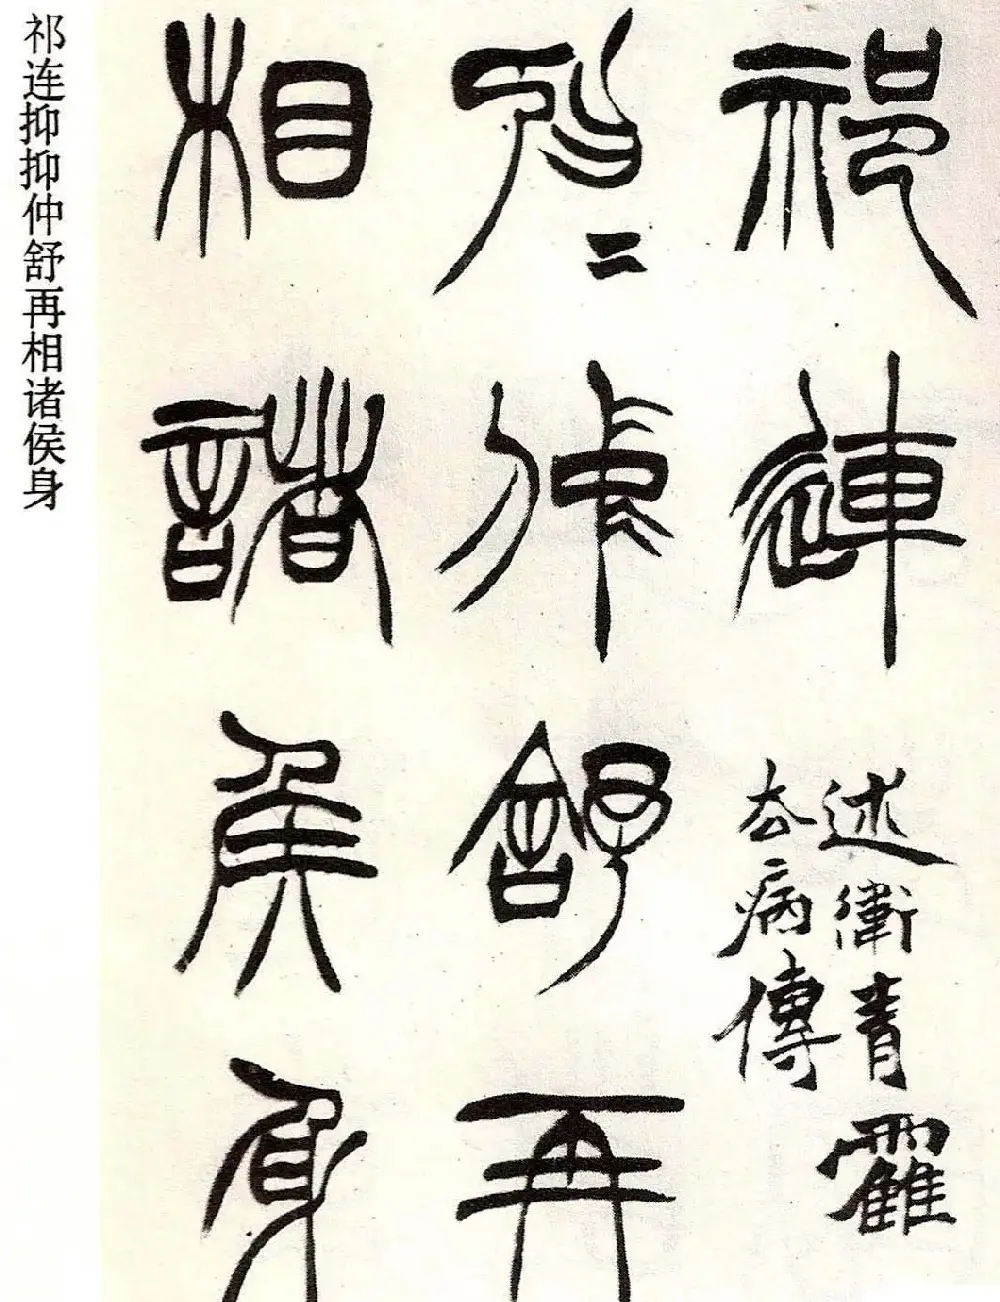 祁连抑抑仲舒再相诸侯身
祁連
述衛青霍
去病傳
抑二仲舒再
相諸侯身